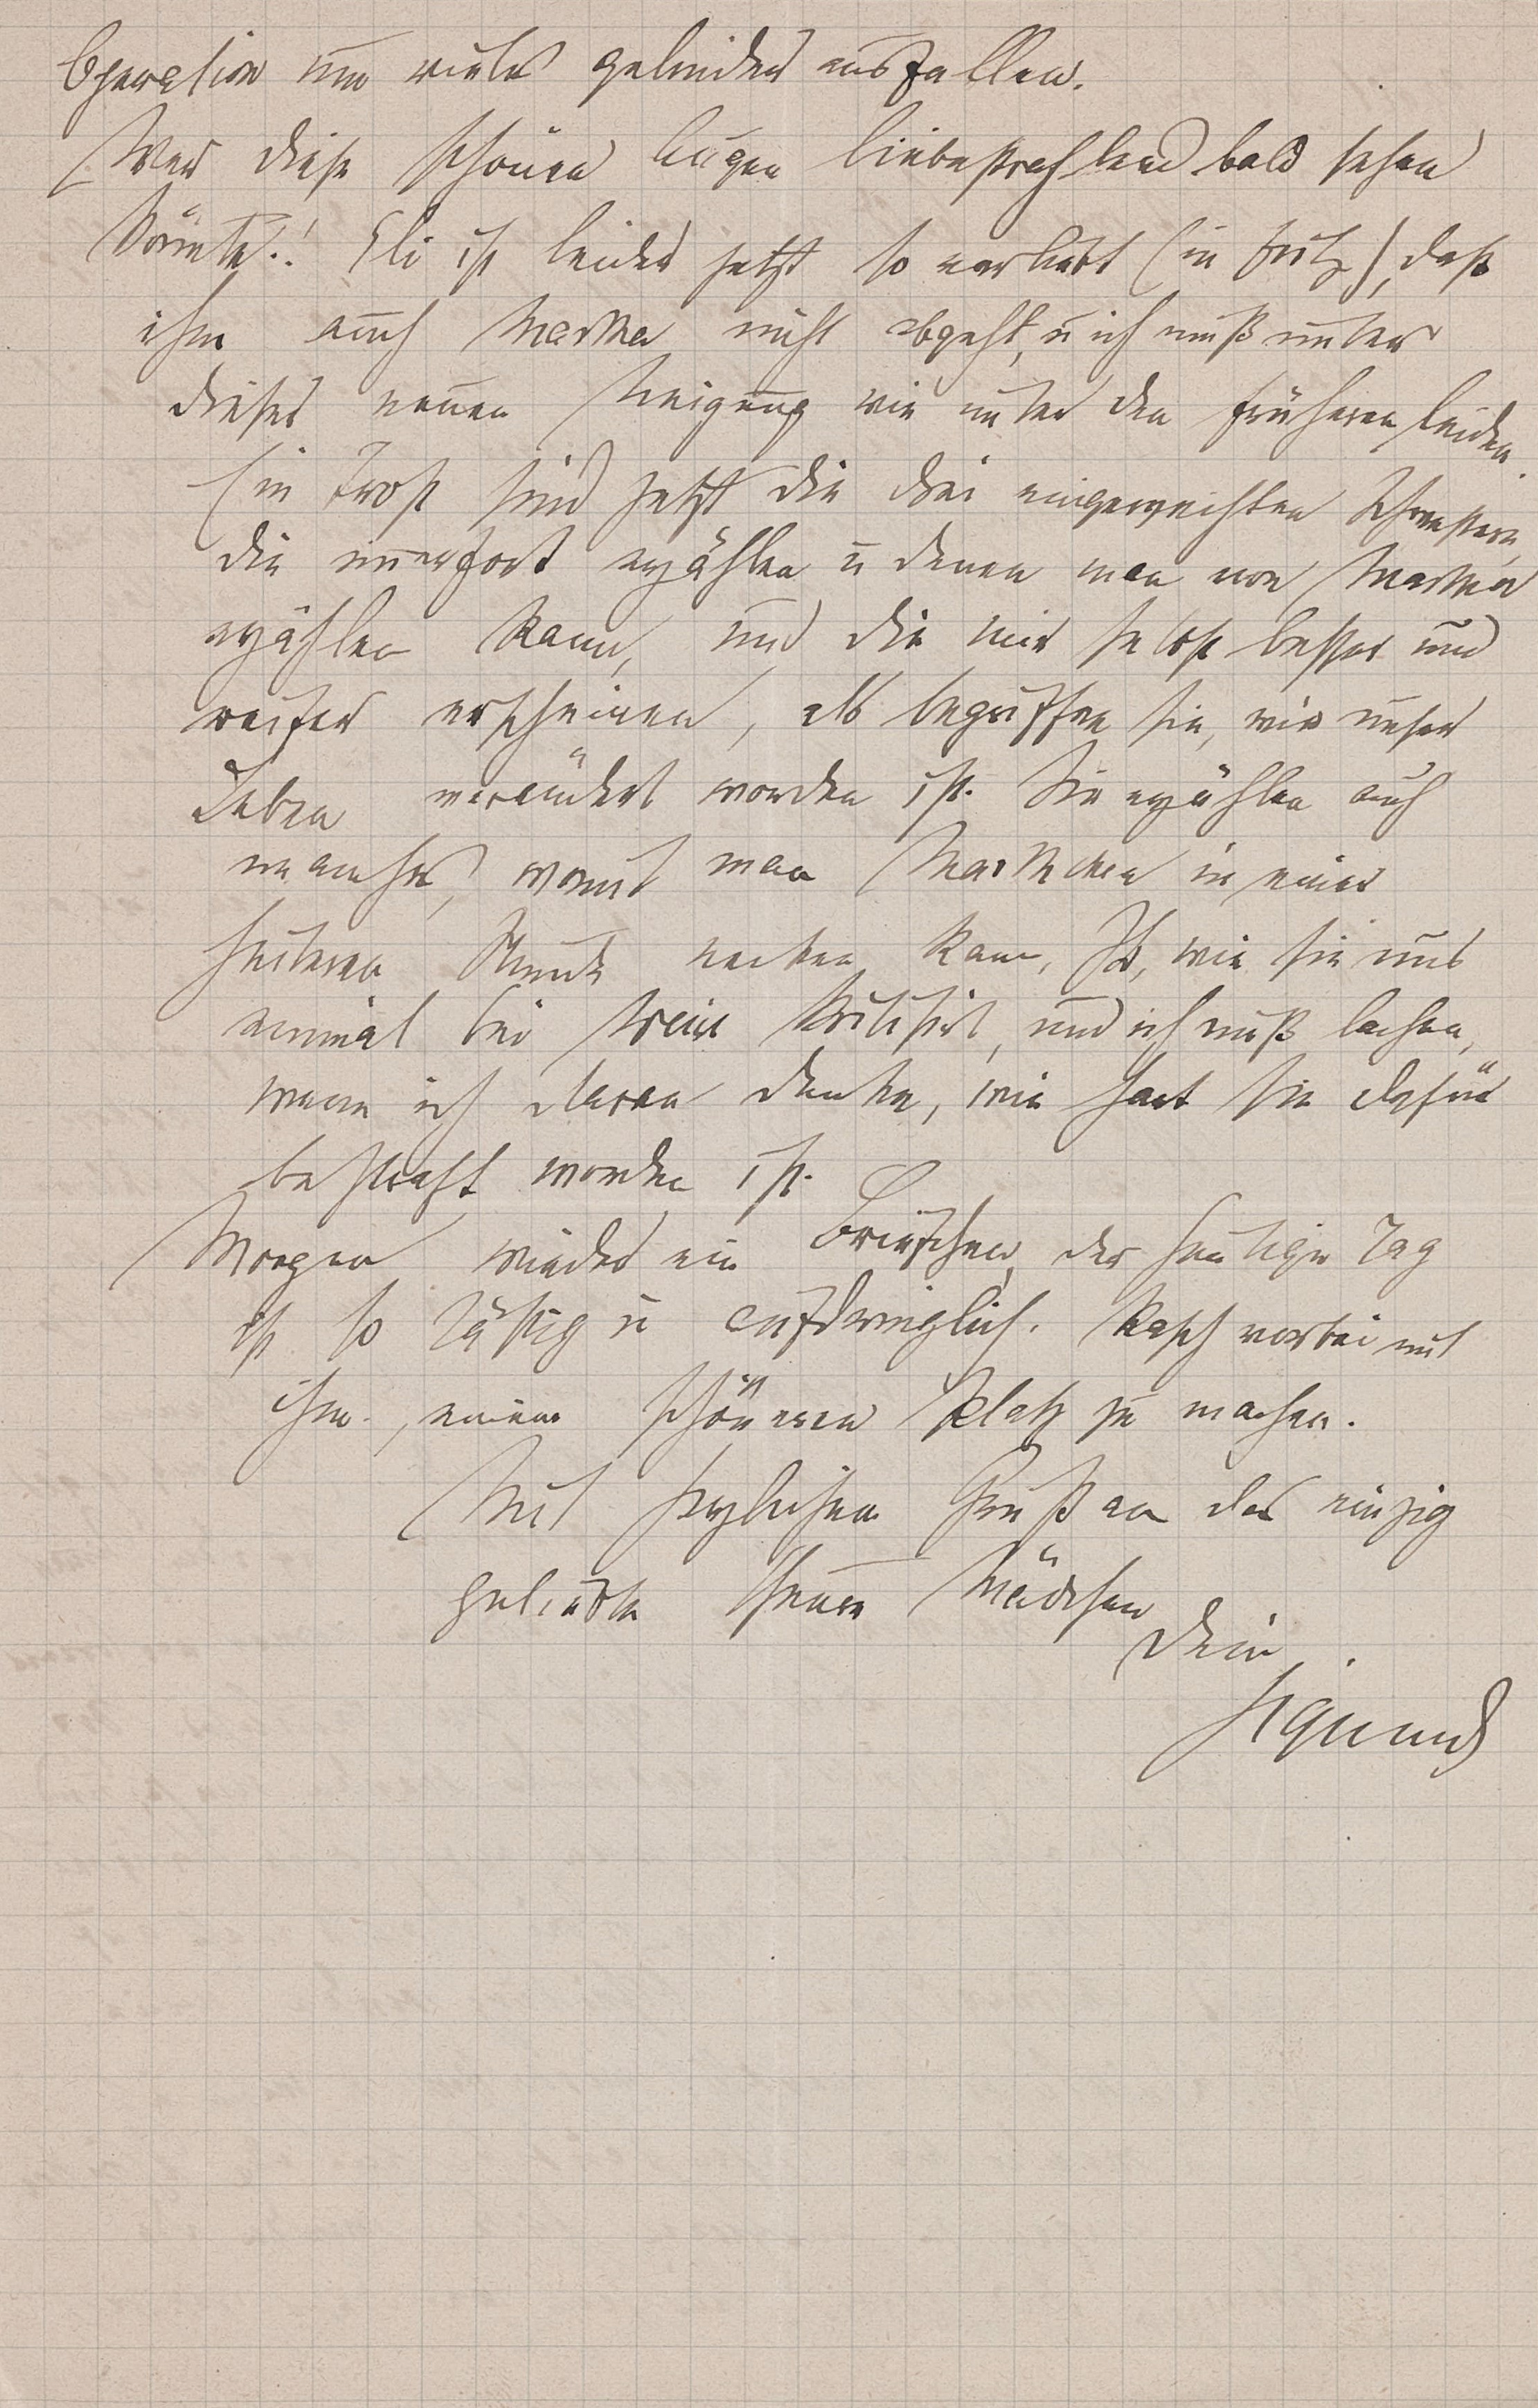 Operation um vieles gelinder ausfallen.
Wer diese schönen Augen liebestrahlend bald sehen
könnte.! Eli ist leider jetzt so verliebt (in Fritz), daß
ihm auch Martha nicht abgeht, u ich muß unter
dieser neuen Neigung wie unter den früheren leiden.
Ein Trost sind jetzt die drei eingeweihten Schwestern,
die immerfort erzählen u denen man von Martha
erzählen kann, und die mir selbst besser und
reifer erscheinen, als begriffen sie, wie unser
Leben verändert worden ist. Sie erzählen auch
manches, womit man Marthchen in einer
heiteren Stunde necken kann, wie sie uns
einmal bei kritisirt, und ich muß lachen,
wenn ich daran denke, wie hart sie dafür
bestraft worden ist.
Morgen wieder ein Briefchen, der heutige Tag
ist so lästig u aufdringlich. Rasch vorbei mit
ihm, einem schöneren Platz zu machen.
Mit herzlichem Gruß an das einzig
geliebte theure Mädchen
Dein
Sigmund